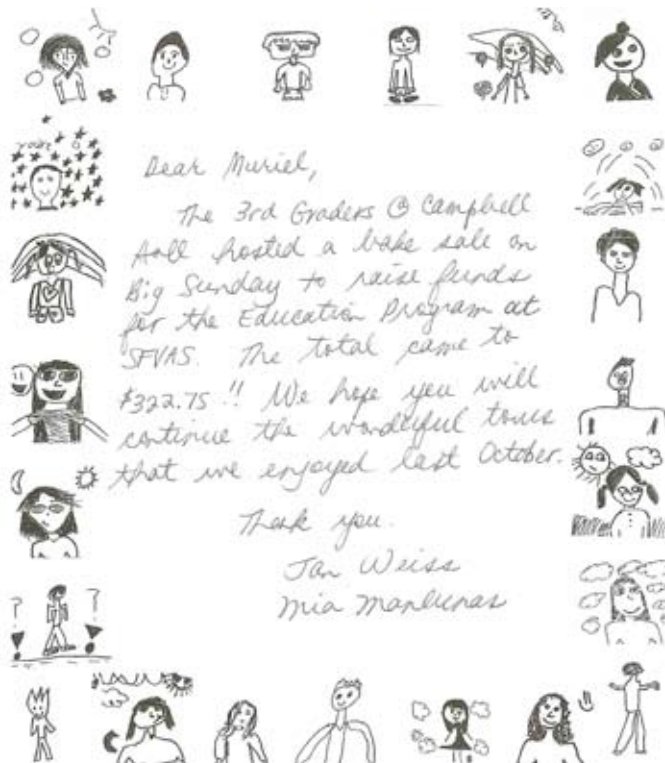 Dear Muriel,
The 3rd Graders @ Campbell
Hall hosted a bake sale on
Big Sunday to raise funds
for the Education Program at
SFVAS. The total came to
$322.75!! We hope you will
continue the wonderful tours
that we enjoyed last October.
Thank you.
Jan Weiss
Mia